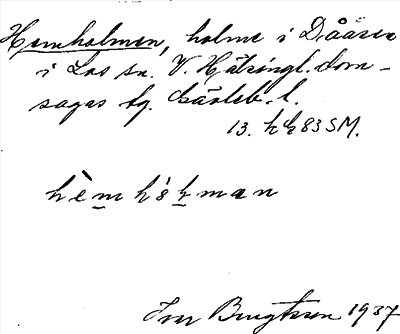 Hemholmen, holme i Dååsen
i Los sn. V. Hälsingl. dom-
sagas tg. Gävleb. l.
13. h h 83 SM.
hèmhòḷman
Ivar Bengtsson 1937